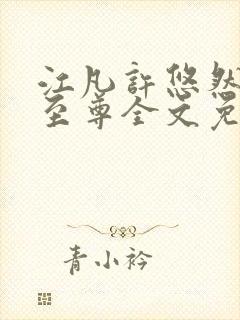 江凡許悠然
至尊全文免
青小衿